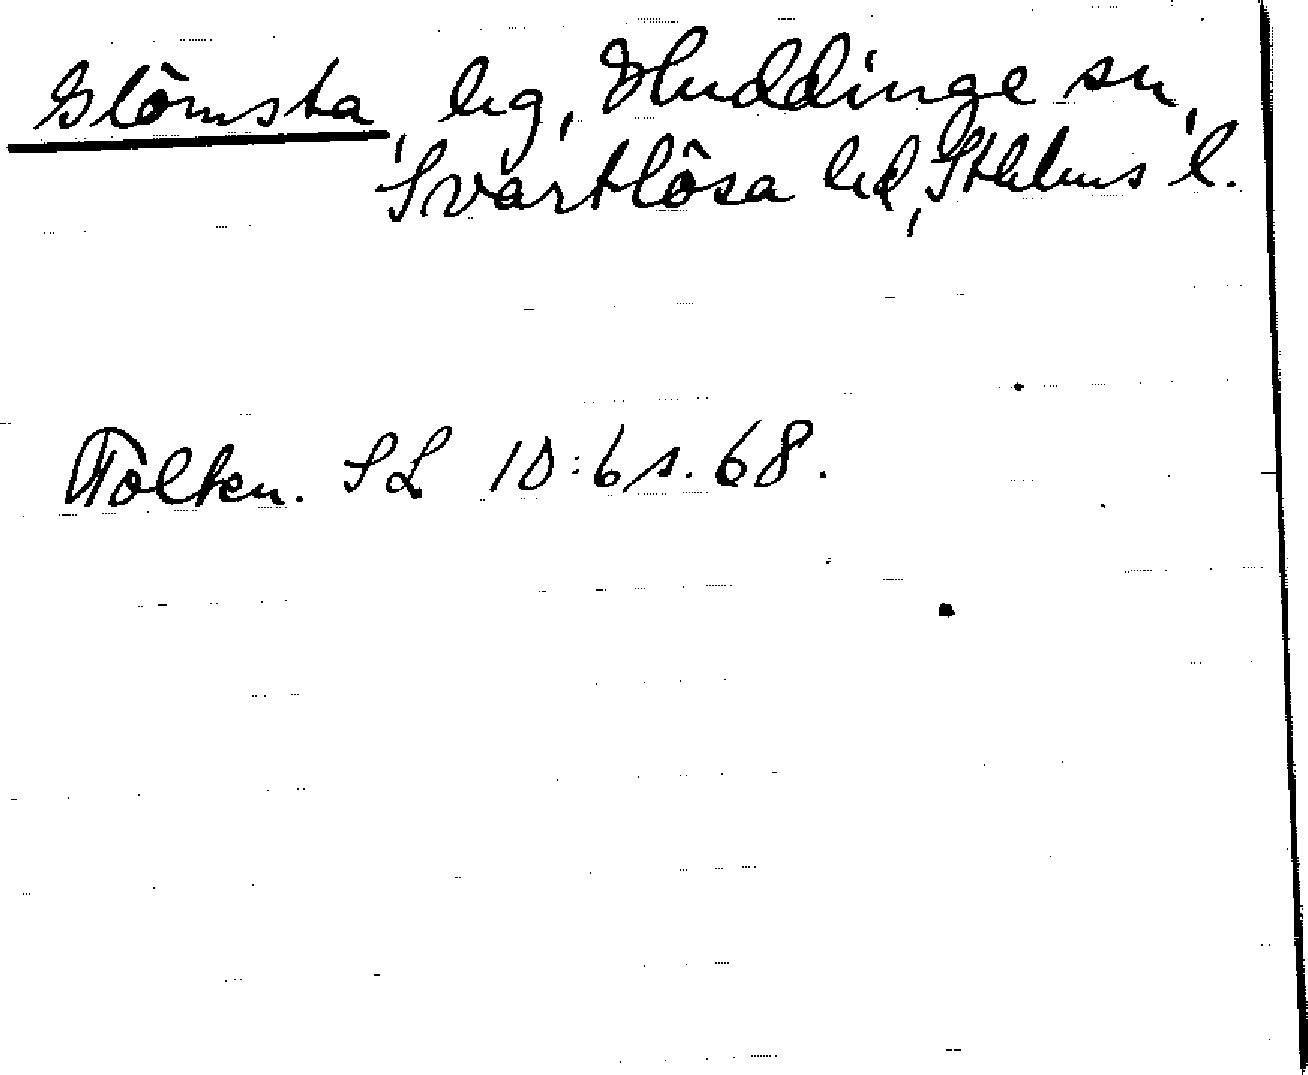 Glömsta, hg, Huddinge sn,
Svartlösa hd, Sthlms l.
Tolkn. SL 10:6 s. 68.